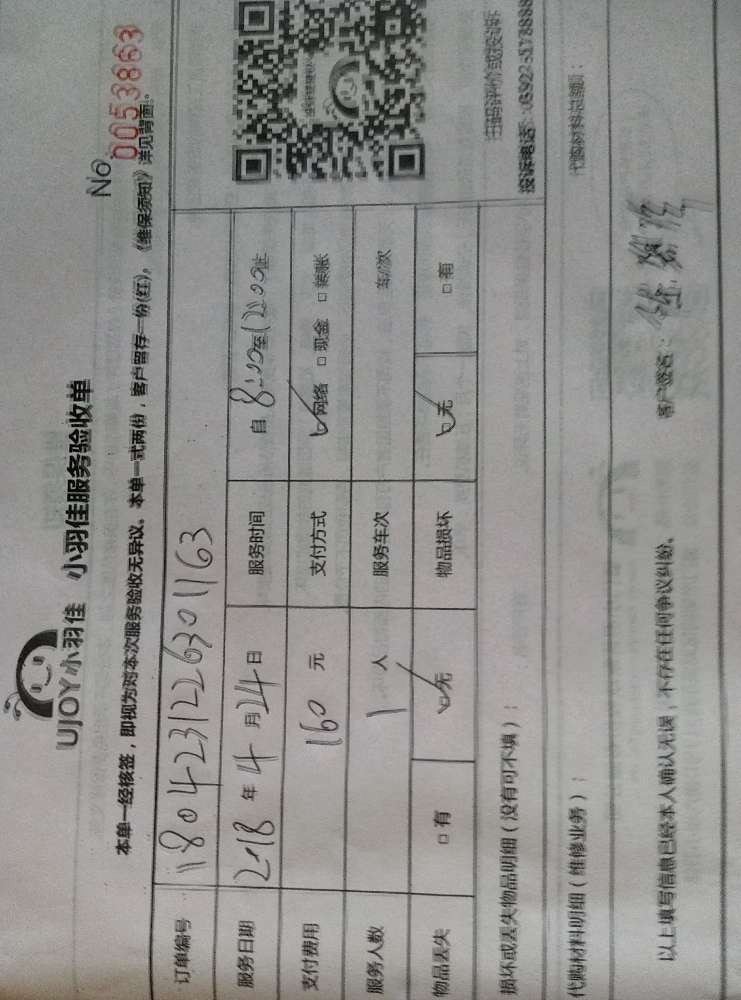 UJOY小羽佳 小羽佳服务验收单
No 0053863
本单一经核签，即视为对本次服务验收无异议。本单一式两份，客户留存一份(红)。《维保须知》详见背面。
订单编号 1804231226301163
服务日期 2018 年 4 月 24 日 服务时间 自 8:00 至 12:00 止
支付费用 160 元 支付方式 ☑网络 □现金 □转账
服务人数 1 人 服务车次 车次
物品丢失 □有 ☑无 物品损坏 ☑无 □有
损坏或丢失物品明细（没有可不填）：
代购材料明细（维修业务）： 代购材料总额：
以上填写信息已经本人确认无误，不存在任何争议纠纷。 客户签名：
扫码评价或投诉